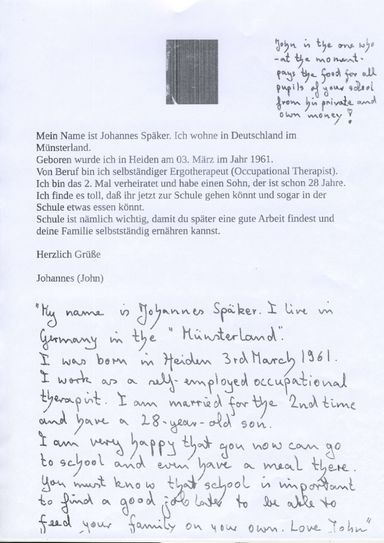 John is the one who
-at the moment-
pays the food for all
pupils of your school
from his private and
own money!
Mein Name ist Johannes Späker. Ich wohne in Deutschland im
Münsterland.
Geboren wurde ich in Heiden am 03. März im Jahr 1961.
Von Beruf bin ich selbständiger Ergotherapeut (Occupational Therapist).
Ich bin das 2. Mal verheiratet und habe einen Sohn, der ist schon 28 Jahre.
Ich finde es toll, daß ihr jetzt zur Schule gehen könnt und sogar in der
Schule etwas essen könnt.
Schule ist nämlich wichtig, damit du später eine gute Arbeit findest und
deine Familie selbstständig ernähren kannst.
Herzlich Grüße
Johannes (John)
"My name is Johannes Späker. I live in
Germany in the "Münsterland".
I was born in Heiden 3rd March 1961.
I work as a self-employed occupational
therapist. I am married for the 2nd time
and have a 28-year-old son.
I am very happy that you now can go
to school and even have a meal there.
You must know that school is important
to find a good job later to be able to
feed your family on your own. Love "John"